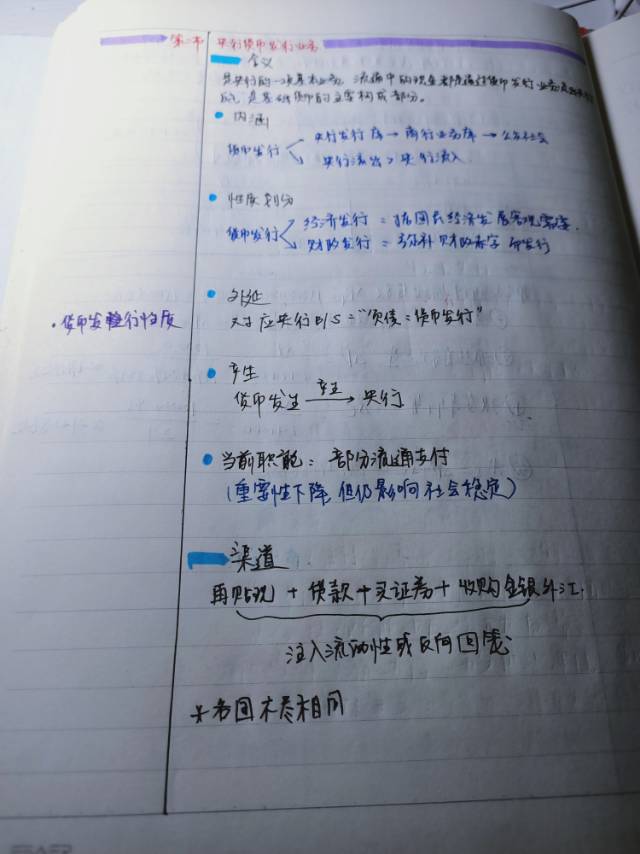 第二节 央行货币发行业务
含义
是央行的一项基本业务,流通中的现金都是通过货币发行业务
的,是基础货币的主要构成部分。
内涵
货币发行
央行发行库→商行业务库→公众社会
央行流出>央行流入
性质划分
货币发行
经济发行=据国民经济发展客观需要.
财政发行=弥补财政赤字而发行
外延
对应央行B/S="负债:货币发行"
·货币发行性质
产生
货币发生 产生→ 央行
当前职能:部分流通支付
(重要性下降,但仍影响社会稳定)
渠道
再贴现+贷款+买证券+收购金银外汇.
注入流动性或反向回笼
*各国不尽相同